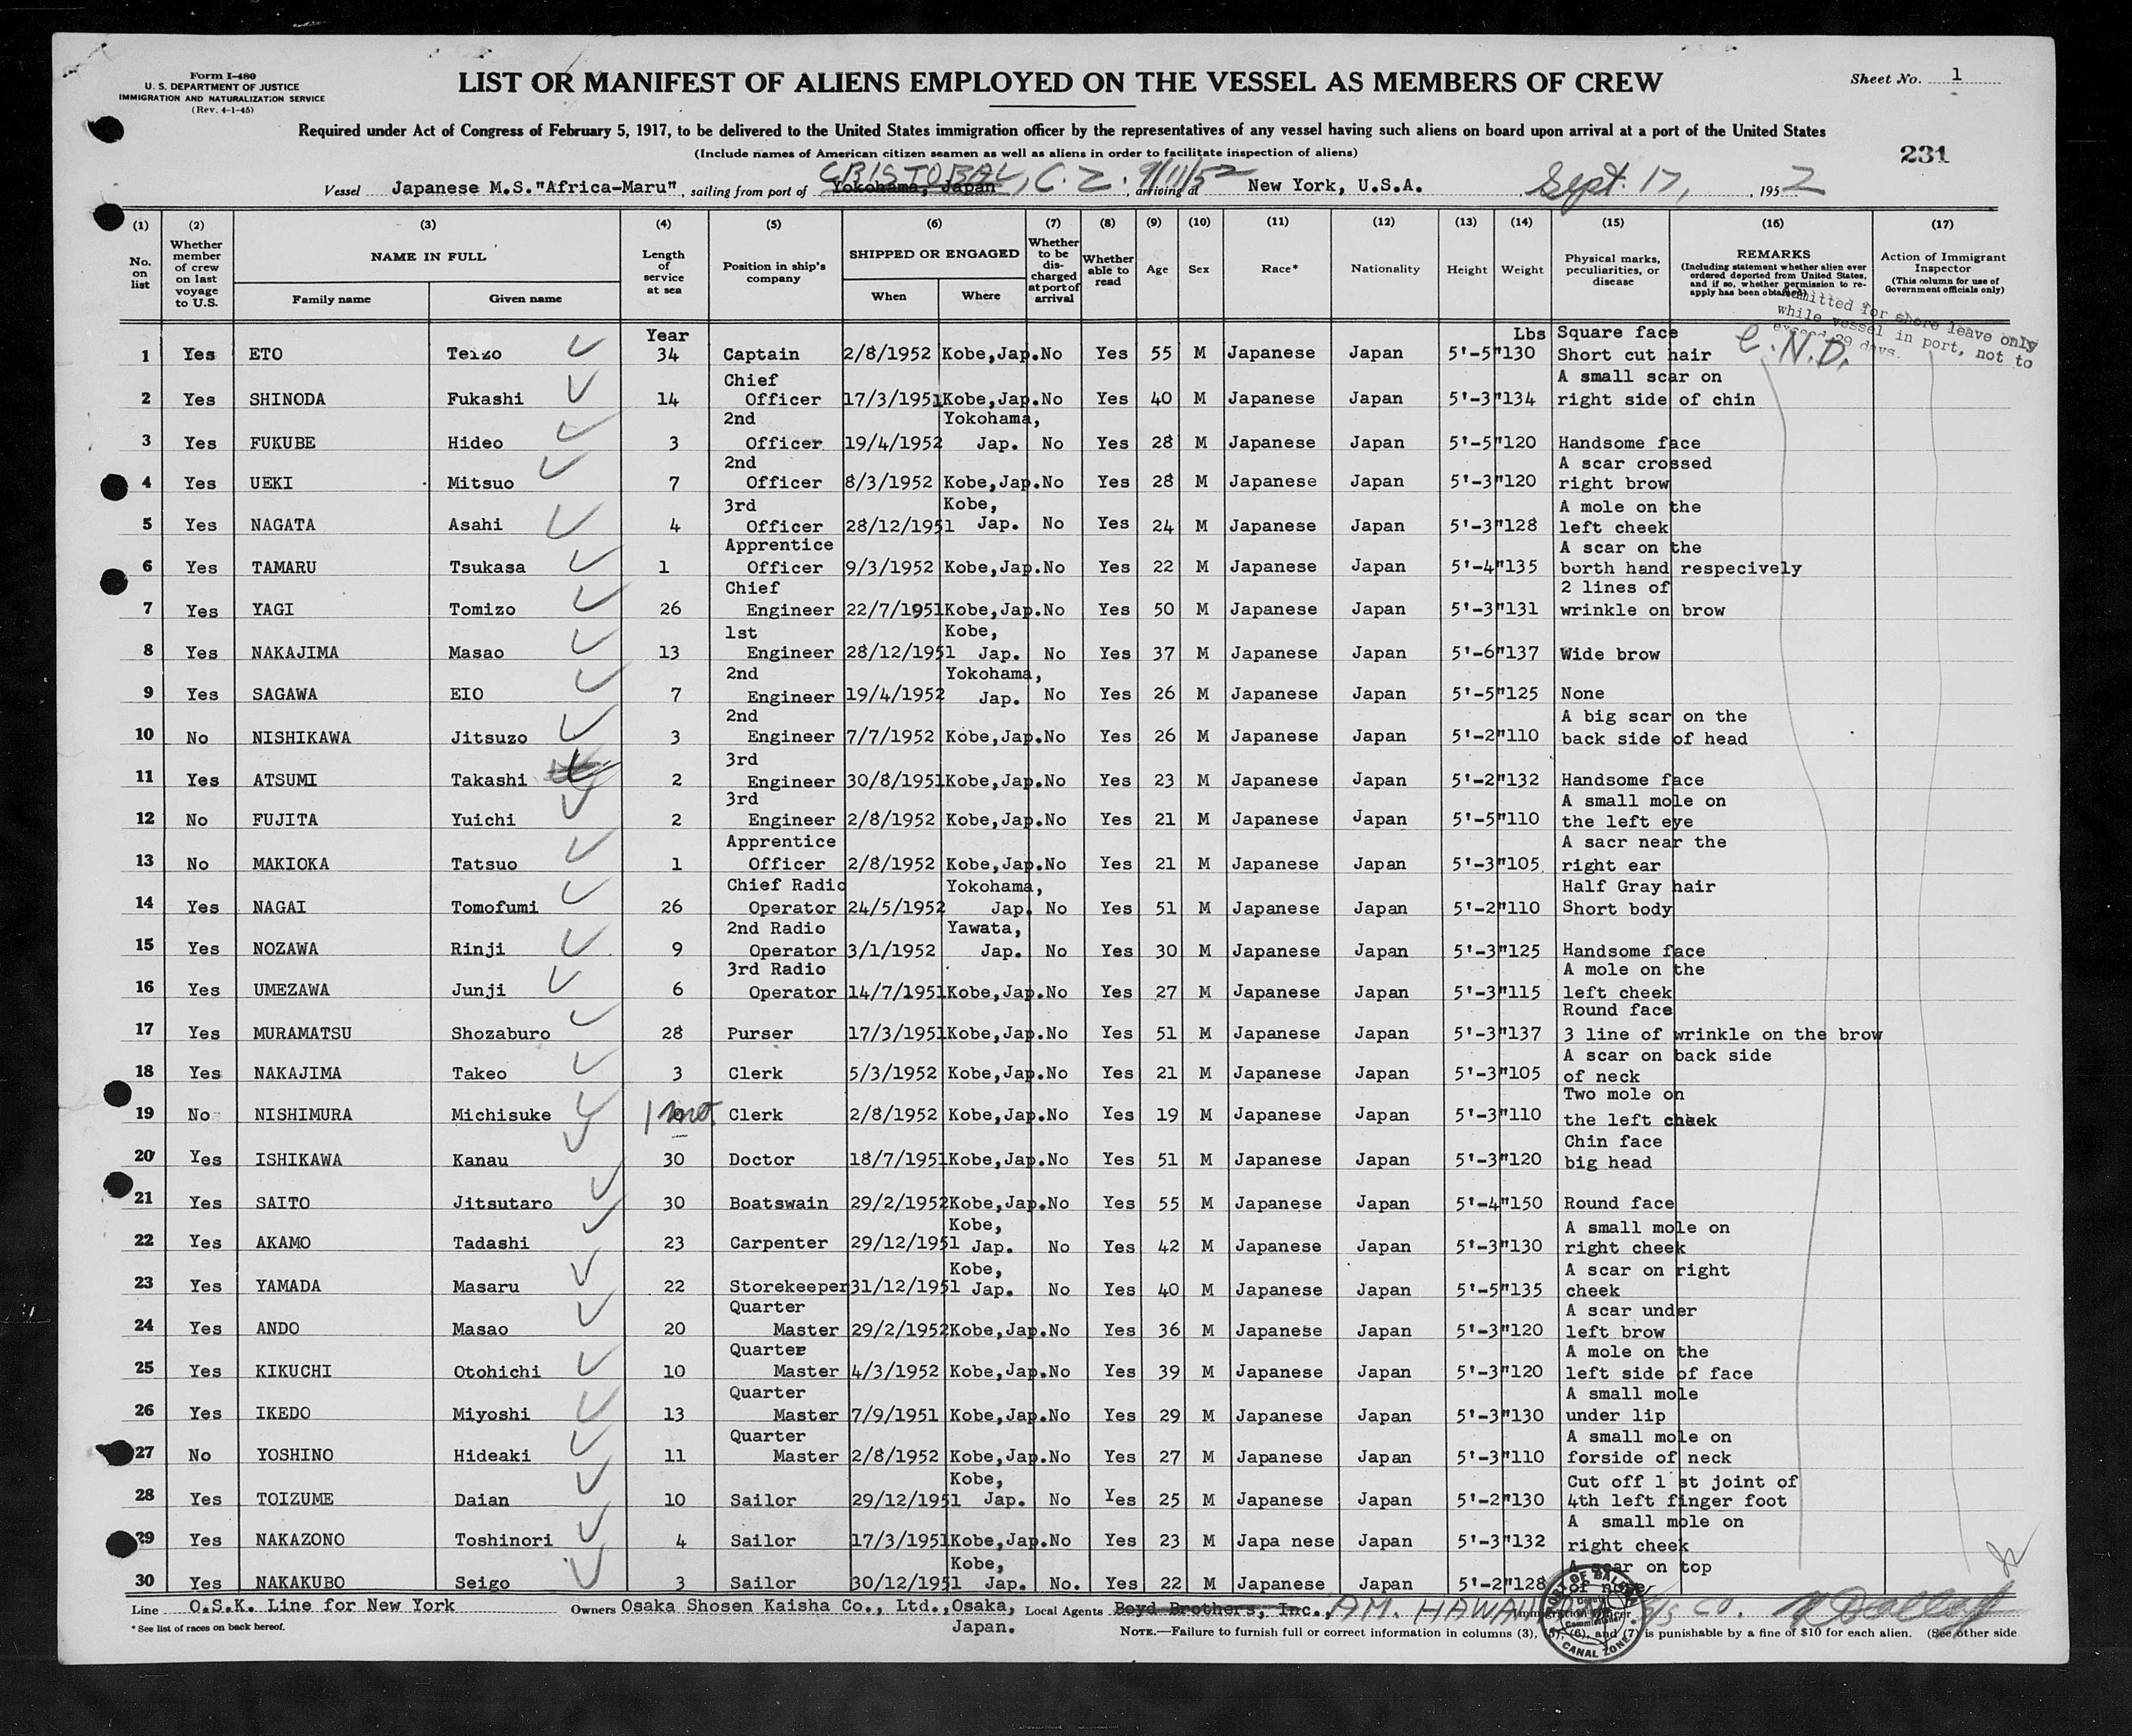 Form I-480
U. S. DEPARTMENT OF JUSTICE
IMMIGRATION AND NATURALIZATION SERVICE
(Rev. 4-1-45)
LIST OR MANIFEST OF ALIENS EMPLOYED ON THE VESSEL AS MEMBERS OF CREW
Sheet No. 1
Required under Act of Congress of February 5, 1917, to be delivered to the United States immigration officer by the representatives of any vessel having such aliens on board upon arrival at a port of the United States
(Include names of American citizen seamen as well as aliens in order to facilitate inspection of aliens)
231
CRISTOBAL, C. Z. 9/11/52
Vessel Japanese M.S."Africa-Maru", sailing from port of Yokohama, Japan, arriving at New York, U.S.A. Sept. 17, 1952
(1) (2) (3) (4) (5) (6) (7) (8) (9) (10) (11) (12) (13) (14) (15) (16) (17)
No. on list
Whether member of crew on last voyage to U.S.
NAME IN FULL
Family name Given name
Length of service at sea
Position in ship's company
SHIPPED OR ENGAGED
When Where
Whether to be discharged at port of arrival
Whether able to read
Age Sex Race* Nationality Height Weight
Physical marks, peculiarities, or disease
REMARKS
(Including statement whether alien ever ordered deported from United States, and if so, whether permission to reapply has been obtained)
Action of Immigrant Inspector
(This column for use of Government officials only)
Admitted for shore leave only
while vessel in port, not to
exceed 29 days.
C.N.D.
Year Lbs
1 Yes ETO Teizo 34 Captain 2/8/1952 Kobe,Jap. No Yes 55 M Japanese Japan 5'-5" 130 Square face Short cut hair
2 Yes SHINODA Fukashi 14 Chief Officer 17/3/1951 Kobe,Jap. No Yes 40 M Japanese Japan 5'-3" 134 A small scar on right side of chin
3 Yes FUKUBE Hideo 3 2nd Officer 19/4/1952 Yokohama, Jap. No Yes 28 M Japanese Japan 5'-5" 120 Handsome face
4 Yes UEKI Mitsuo 7 2nd Officer 8/3/1952 Kobe,Jap. No Yes 28 M Japanese Japan 5'-3" 120 A scar crossed right brow
5 Yes NAGATA Asahi 4 3rd Officer 28/12/1951 Kobe, Jap. No Yes 24 M Japanese Japan 5'-3" 128 A mole on the left cheek
6 Yes TAMARU Tsukasa 1 Apprentice Officer 9/3/1952 Kobe,Jap. No Yes 22 M Japanese Japan 5'-4" 135 A scar on the borth hand respecively
7 Yes YAGI Tomizo 26 Chief Engineer 22/7/1951 Kobe,Jap. No Yes 50 M Japanese Japan 5'-3" 131 2 lines of wrinkle on brow
8 Yes NAKAJIMA Masao 13 1st Engineer 28/12/1951 Kobe, Jap. No Yes 37 M Japanese Japan 5'-6" 137 Wide brow
9 Yes SAGAWA EIO 7 2nd Engineer 19/4/1952 Yokohama, Jap. No Yes 26 M Japanese Japan 5'-5" 125 None
10 No NISHIKAWA Jitsuzo 3 2nd Engineer 7/7/1952 Kobe,Jap. No Yes 26 M Japanese Japan 5'-2" 110 A big scar on the back side of head
11 Yes ATSUMI Takashi 2 3rd Engineer 30/8/1951 Kobe,Jap. No Yes 23 M Japanese Japan 5'-2" 132 Handsome face
12 No FUJITA Yuichi 2 3rd Engineer 2/8/1952 Kobe,Jap. No Yes 21 M Japanese Japan 5'-5" 110 A small mole on the left eye
13 No MAKIOKA Tatsuo 1 Apprentice Officer 2/8/1952 Kobe,Jap. No Yes 21 M Japanese Japan 5'-3" 105 A sacr near the right ear
14 Yes NAGAI Tomofumi 26 Chief Radio Operator 24/5/1952 Yokohama, Jap. No Yes 51 M Japanese Japan 5'-2" 110 Half Gray hair Short body
15 Yes NOZAWA Rinji 9 2nd Radio Operator 3/1/1952 Yawata, Jap. No Yes 30 M Japanese Japan 5'-3" 125 Handsome face
16 Yes UMEZAWA Junji 6 3rd Radio Operator 14/7/1951 Kobe,Jap. No Yes 27 M Japanese Japan 5'-3" 115 A mole on the left cheek
17 Yes MURAMATSU Shozaburo 28 Purser 17/3/1951 Kobe,Jap. No Yes 51 M Japanese Japan 5'-3" 137 Round face 3 line of wrinkle on the brow
18 Yes NAKAJIMA Takeo 3 Clerk 5/3/1952 Kobe,Jap. No Yes 21 M Japanese Japan 5'-3" 105 A scar on back side of neck
19 No NISHIMURA Michisuke 1 mo. Clerk 2/8/1952 Kobe,Jap. No Yes 19 M Japanese Japan 5'-3" 110 Two mole on the left cheek
20 Yes ISHIKAWA Kanau 30 Doctor 18/7/1951 Kobe,Jap. No Yes 51 M Japanese Japan 5'-3" 120 Chin face big head
21 Yes SAITO Jitsutaro 30 Boatswain 29/2/1952 Kobe,Jap. No Yes 55 M Japanese Japan 5'-4" 150 Round face
22 Yes AKAMO Tadashi 23 Carpenter 29/12/1951 Kobe, Jap. No Yes 42 M Japanese Japan 5'-3" 130 A small mole on right cheek
23 Yes YAMADA Masaru 22 Storekeeper 31/12/1951 Kobe, Jap. No Yes 40 M Japanese Japan 5'-5" 135 A scar on right cheek
24 Yes ANDO Masao 20 Quarter Master 29/2/1952 Kobe,Jap. No Yes 36 M Japanese Japan 5'-3" 120 A scar under left brow
25 Yes KIKUCHI Otohichi 10 Quarter Master 4/3/1952 Kobe,Jap. No Yes 39 M Japanese Japan 5'-3" 120 A mole on the left side of face
26 Yes IKEDO Miyoshi 13 Quarter Master 7/9/1951 Kobe,Jap. No Yes 29 M Japanese Japan 5'-3" 130 A small mole under lip
27 No YOSHINO Hideaki 11 Quarter Master 2/8/1952 Kobe,Jap. No Yes 27 M Japanese Japan 5'-3" 110 A small mole on forside of neck
28 Yes TOIZUME Daian 10 Sailor 29/12/1951 Kobe, Jap. No Yes 25 M Japanese Japan 5'-2" 130 Cut off 1 st joint of 4th left finger foot
29 Yes NAKAZONO Toshinori 4 Sailor 17/3/1951 Kobe,Jap. No Yes 23 M Japa nese Japan 5'-3" 132 A small mole on right cheek
30 Yes NAKAKUBO Seigo 3 Sailor 30/12/1951 Kobe, Jap. No. Yes 22 M Japanese Japan 5'-2" 128 A scar on top of nose
Line O.S.K. Line for New York Owners Osaka Shosen Kaisha Co., Ltd.,Osaka, Japan. Local Agents Boyd Brothers, Inc., AM. HAWAIIAN S/S CO. Immigration Officer
PORT OF BALBOA CANAL ZONE
*See list of races on back hereof.
NOTE.—Failure to furnish full or correct information in columns (3), (5), (6), and (7) is punishable by a fine of $10 for each alien. (See other side